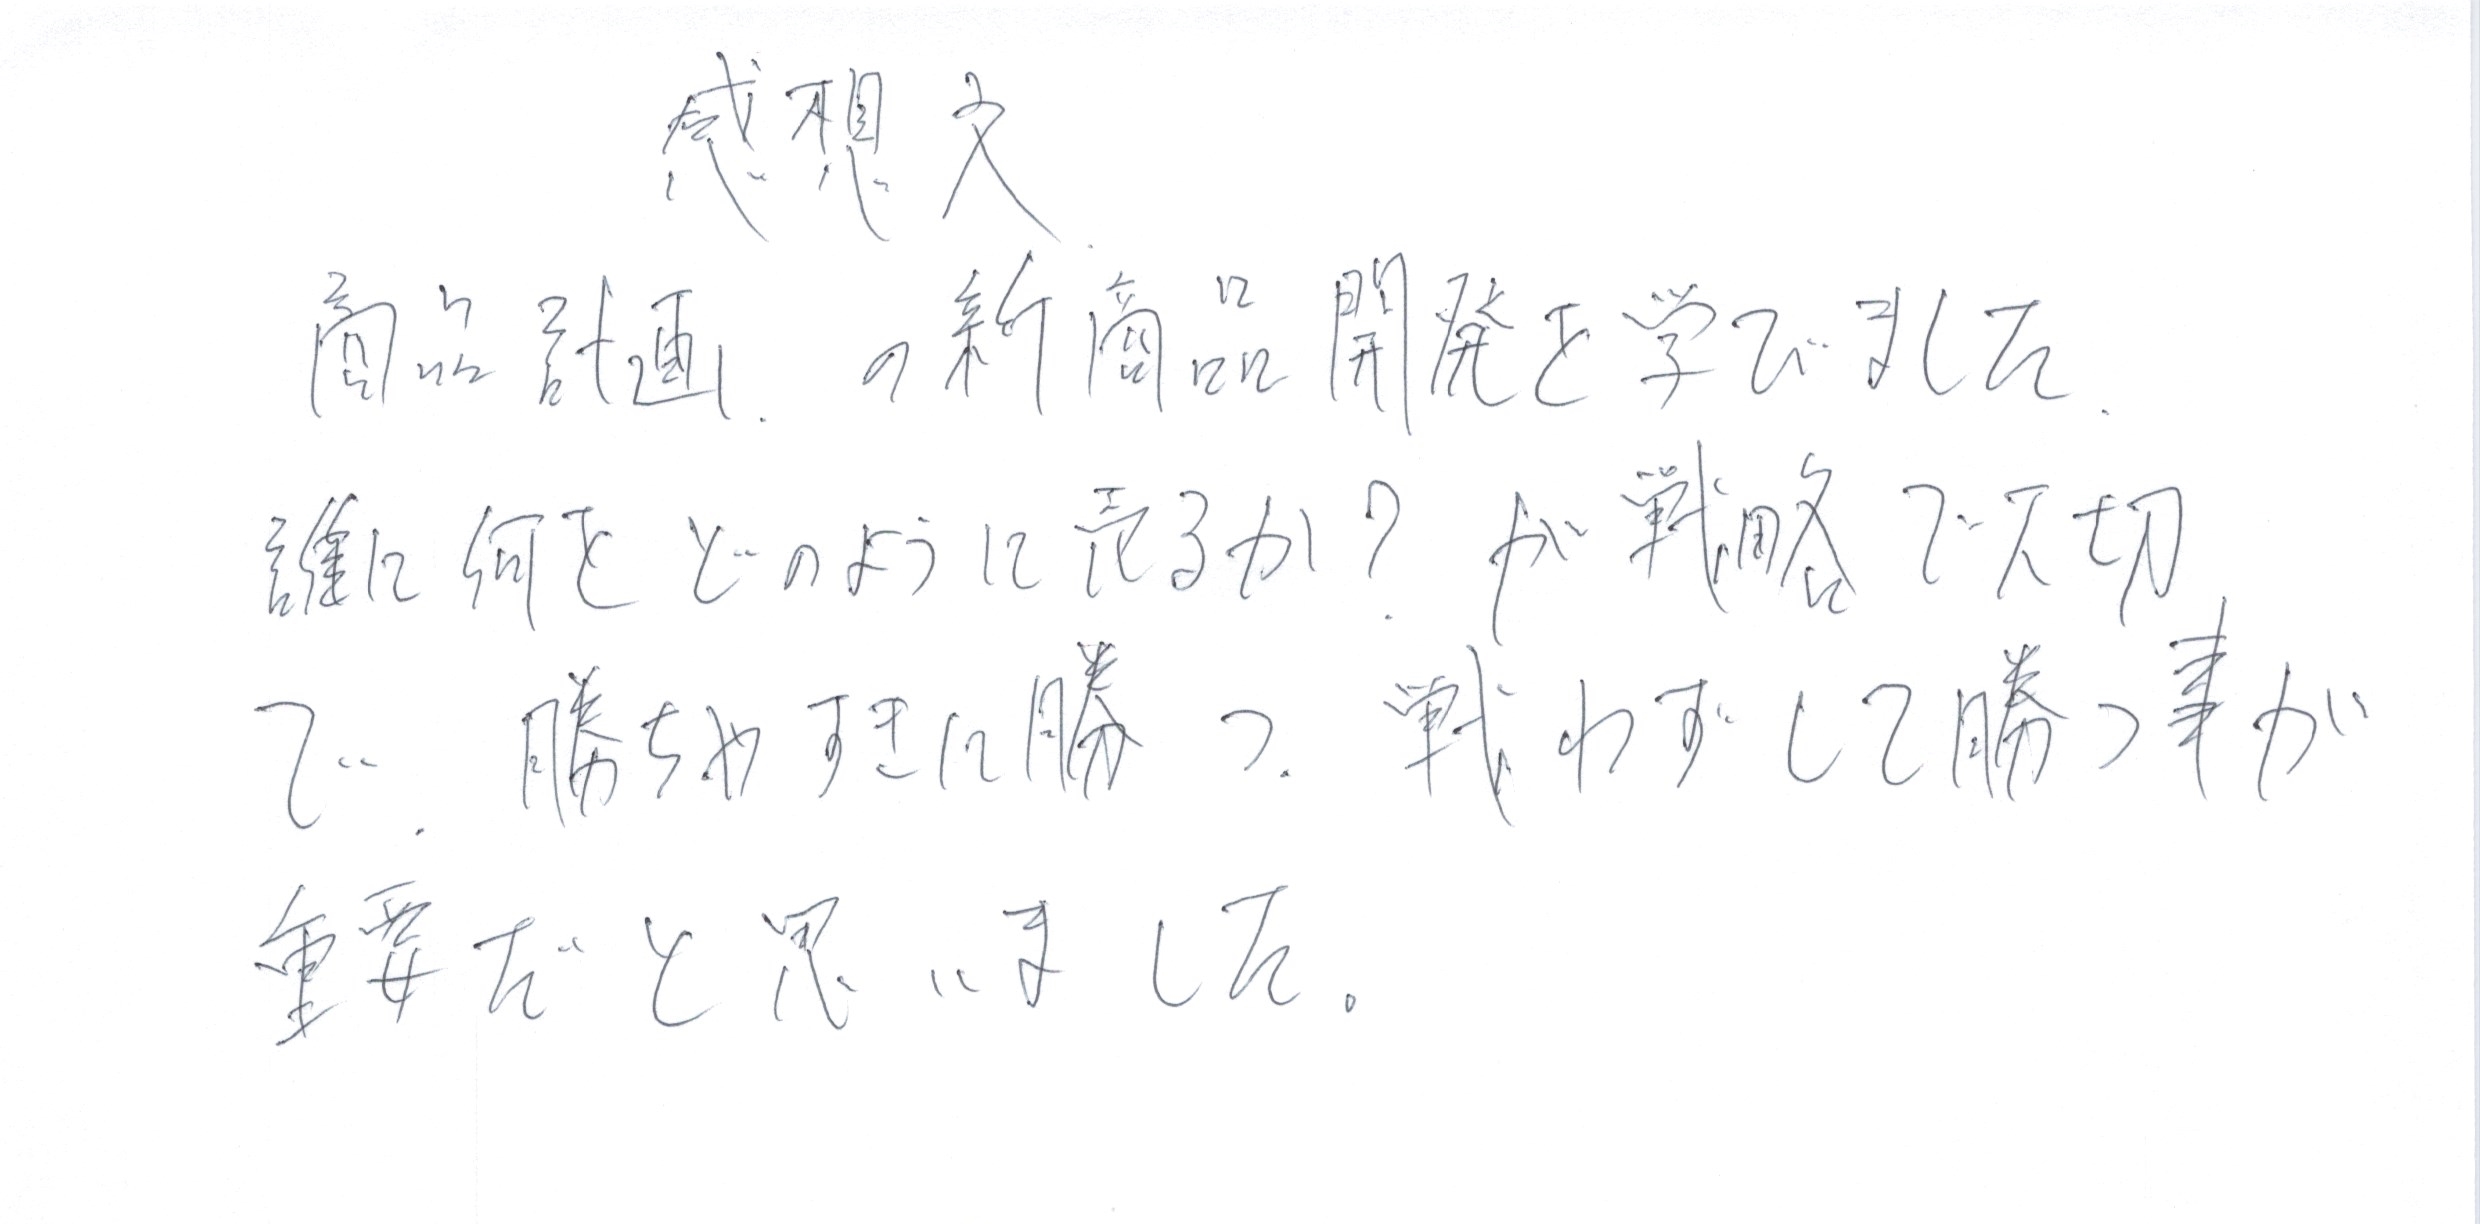 感想文
商品計画、の新商品開発を学びました。
誰に何をどのように売るか?が戦略で大切
で、勝ちやすきに勝つ、戦わずして勝つ事が
重要だと思いました。